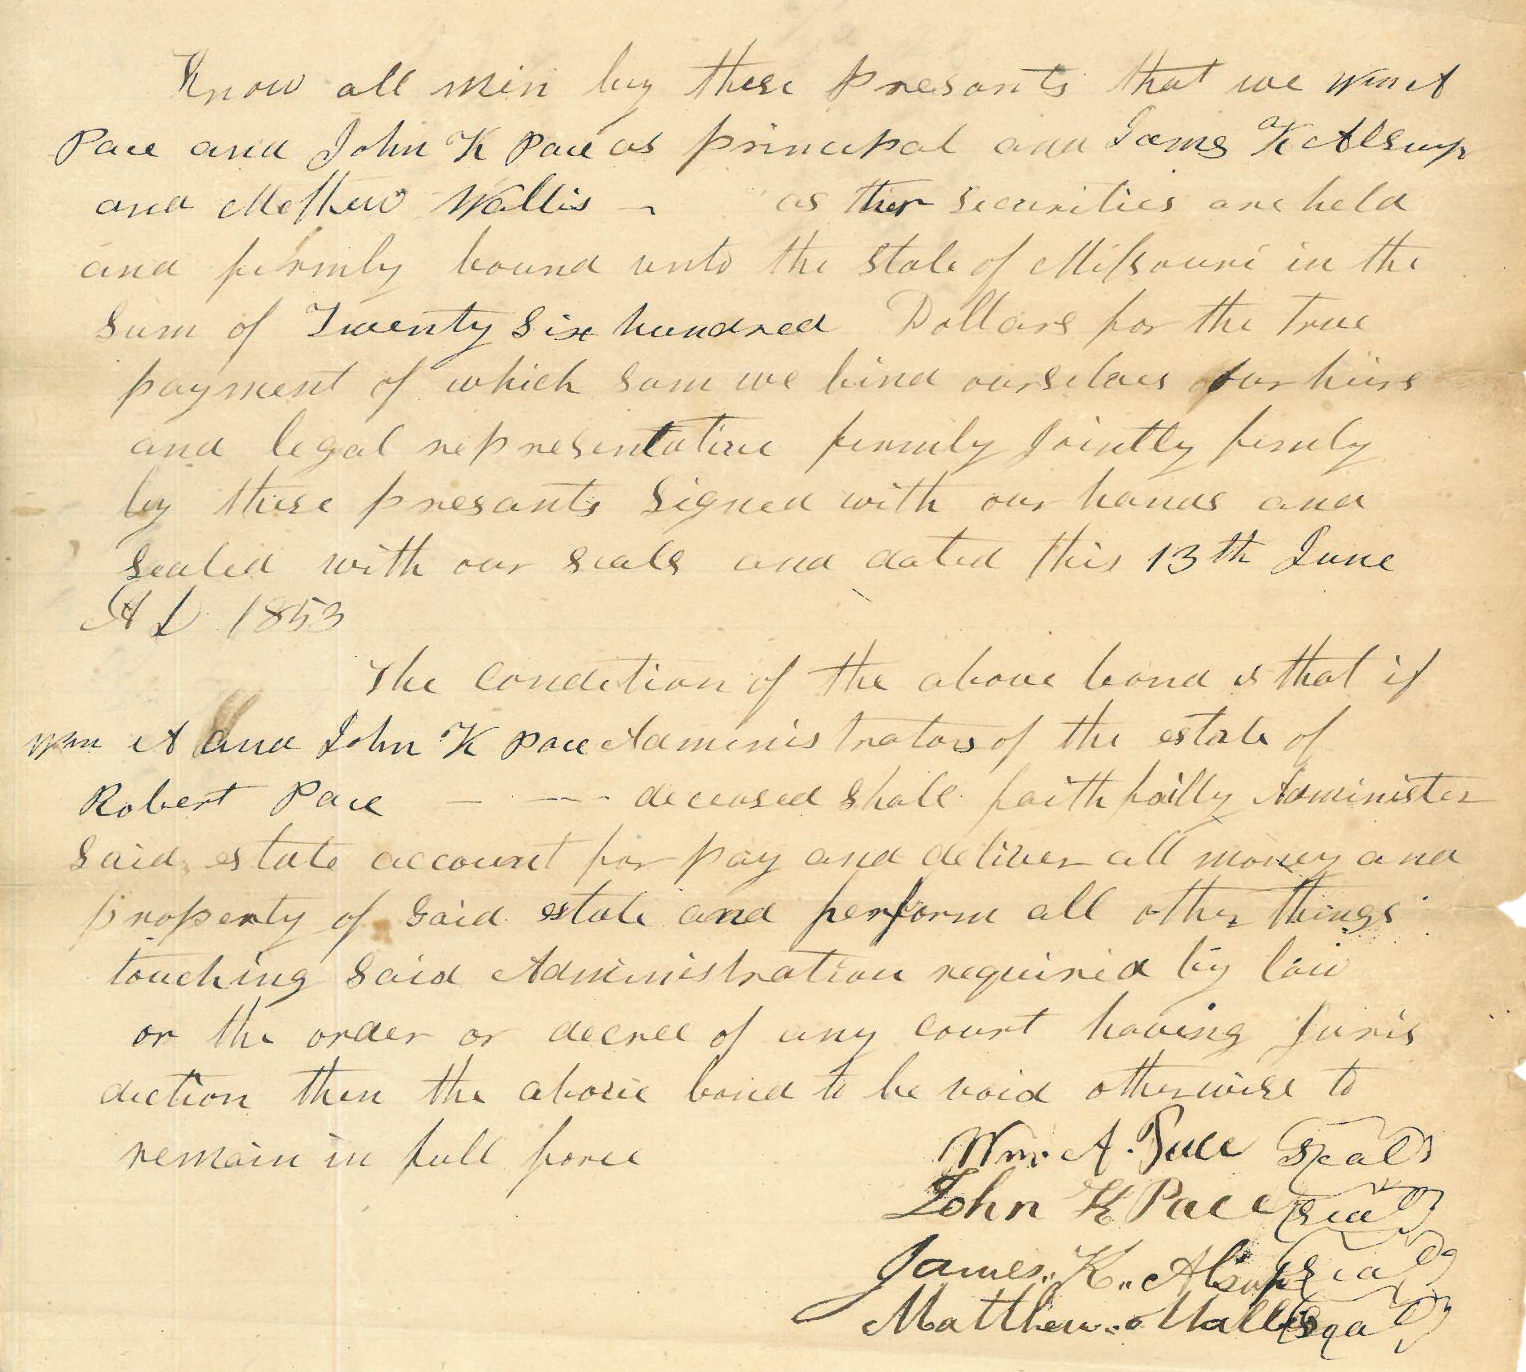 Know all men by these presants that we Wm A
Pace and John K Pace as principal and Jams K Alsup
and Mathew Wallis — as ther securities are held
and firmly bound unto the State of Missouri in the
Sum of Twenty Six hundred Dollars for the True
payment of which Sum we bind ourselves our heirs
and legal representative firmly Jointly firmly
by these presants Signed with our hands and
Sealed with our seals and dated this 13th June
A D 1853
The Condition of the above bond is that if
Wm A and John K Pace Administrators of the estate of
Robert Pace — — deceased shall faithfully Administer
Said estate account for pay and deliver all money and
property of Said estate and perform all other things
touching Said Administration required by law
or the order or decree of any court having Juris
diction then the above bond to be void otherwise to
remain in full force
Wm. A. Pace Seal
John K Pace Seal
James. K. Alsup Seal
Matthew Wallis Seal